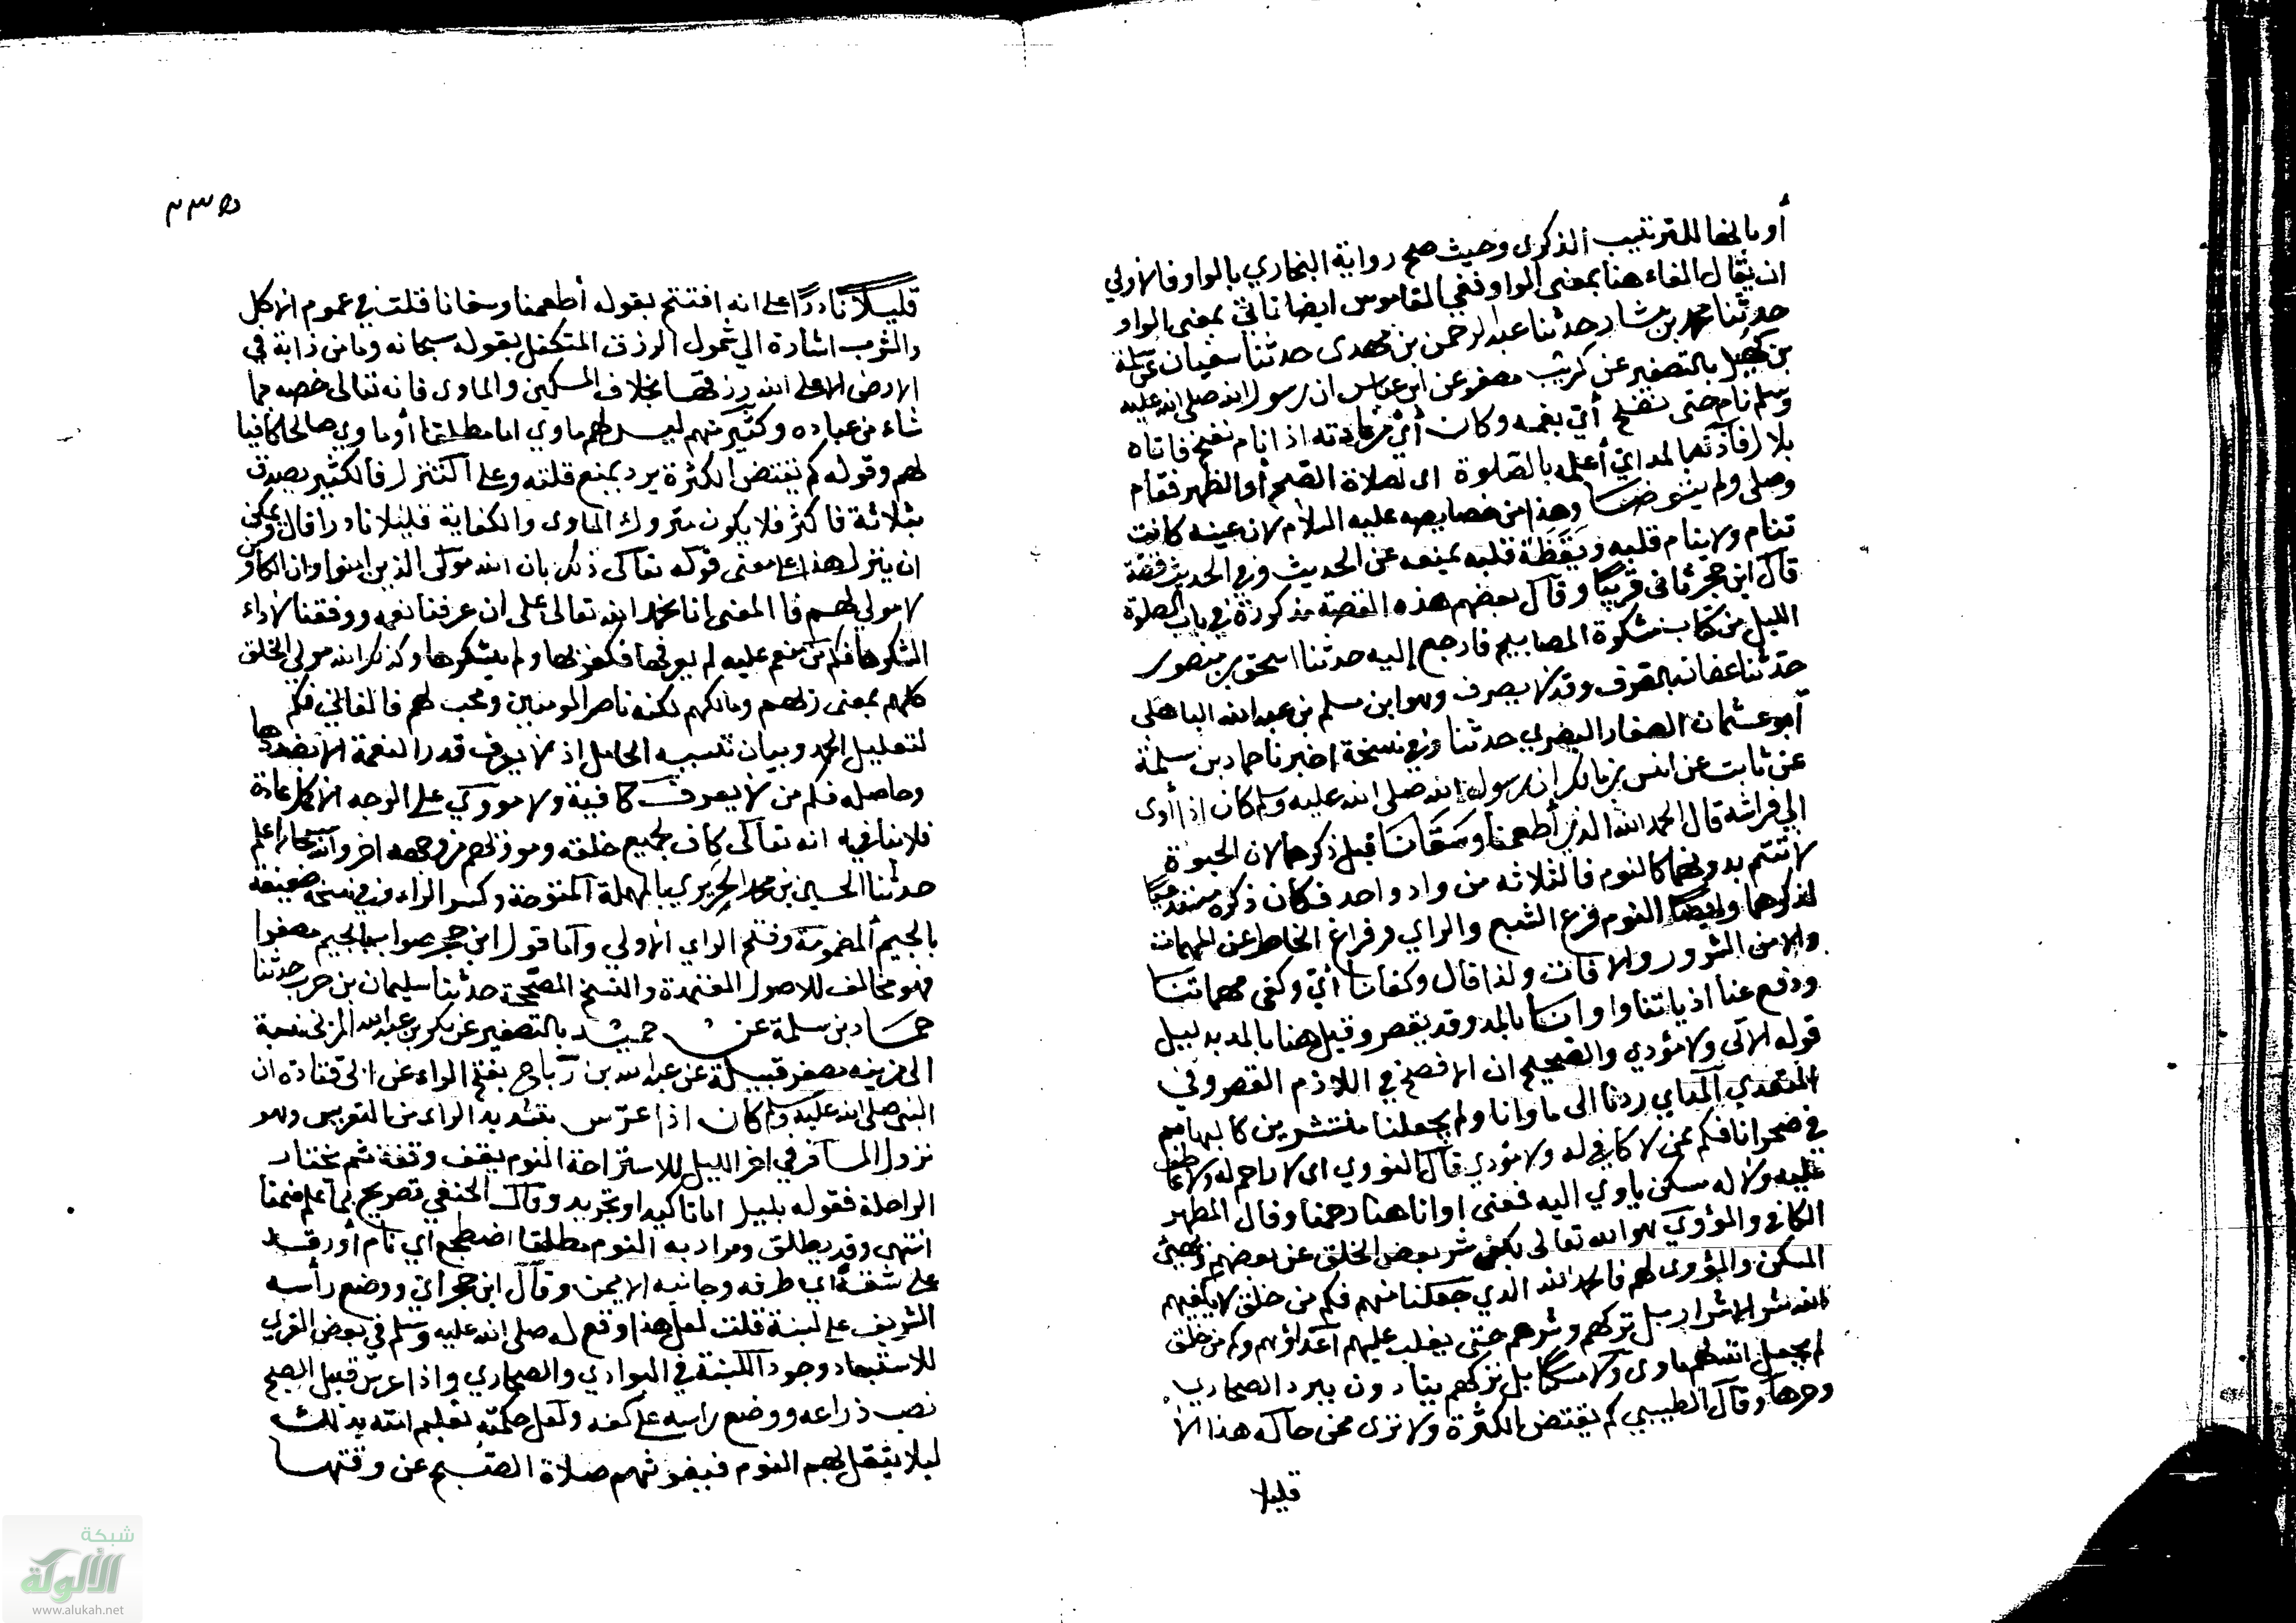 أو بالفا للترتيب الذكرى وحيث صح رواية البخاري بالواو فالاولي
ان يقال الفاء هنا بمعنى الواو ففي القاموس ايضا تاتي بمعنى الواو
حدثنا محمد بن بشار حدثنا عبد الرحمن بن مهدى حدثنا سفيان عن سلمة
بن كهيل بالتصغير عن كريب مصغر عن ابن عباس ان رسول الله صلى الله عليه
وسلم نام حتى نفخ أي بفمه وكان أي من عادته اذا نام نفخ فاتاه
بلال فاذنه بالمد اي أعلمه بالصلوة اى لصلاة الصبح أو الظهر فقام
وصلى ولم يتوضا وهذا من خصايصه عليه السلام لان عينه كانت
تنام ولا ينام قلبه ويقظة قلبه يمنعه عن الحديث وفي الحديث قصة
قال ابن حجر تاتى قريبا وقال بعضهم هذه القصة مذكورة في باب صلوة
الليل من كتاب مشكوة المصابيح فارجع إليه حدثنا اسحق بن منصور
حدثنا عفان بالصرف وقد لا يصرف وهو ابن مسلم بن عبد الله الباهلى
أبو عثمان الصفار البصري حدثنا وفي نسخة اخبرنا حماد بن سلمة
عن ثابت عن انس بن مالك ان رسول الله صلى الله عليه وسلم كان اذا أوى
الي فراشه قال الحمد لله الذي أطعمنا وسقانا قيل ذكرهما لان الحيوة
لا تتم بدونهما كالنوم فالثلاثه من واد واحد فكان ذكره مستدعيا
لذكرهما وايضا النوم فرع الشبع والراي وفراغ الخاطر عن المهمات
والامن الشرور والافات ولذا قال وكفانا أي وكفى مهماتنا
ودفع عنا اذياتنا واوانا بالمد وقد يقصر وقيل هنا بالمد بدليل
قوله الاتى ولا مؤدي والصحيح ان الافصح في اللازم القصر وفي
المتعدي المد اي ردنا الى ماوانا ولم يجعلنا منتشرين كالبهايم
في صحرانا فكم ممن لا كافي له ولا مؤدي قال النووي اى لا راحم له ولا عاطف
عليه ولا له مسكن ياوي اليه فمعنى اوانا هنا رحمنا وقال المظهر
الكافى والمؤوي هو الله تعالى يكفى شر بعض الخلق عن بعضهم ويهيئ
المسكن والمؤوى لهم فالحمد لله الذي جعلنا منهم فكم من خلق لا يكفيهم
الله شر الاشرار بل تركهم وشرهم حتى يغلب عليهم أعداؤهم وكم من خلق
لم يجعل الله لهم ماوى ولا مسكنا بل تركهم يتادون ببرد الصحاري
وحرها وقال الطيبي كم يقتضى الكثرة ولا نرى ممن حاله هذا الا
قليلا
٢٣٥
قليلا نادرا على انه افتتح بقوله أطعمنا وسقانا قلت في عموم الاكل
والشرب اشارة الى شمول الرزق المتكفل بقوله سبحانه وما من دابة في
الارض الا على الله رزقها بخلاف المسكين والماوى فانه تعالى خصه بما
شاء من عباده وكثير منهم ليس لهم ماوي اما مطلقا أو ماوي صالحا كافيا
لهم وقوله كم تقتضى الكثرة يرد بمنع قلته وعلى التنزل فالكثير يصدق
بثلاثة فاكثر فلا يكون متروك الماوى والكفاية قليلا نادرا قال ويمكن
ان ينزل هذا على معنى قوله تعالى ذلك بان الله مولى الذين امنوا وان الكافرين
لا مولي لهم فالمعنى انا نحمد الله تعالى على ان عرفنا نعمه ووفقنا لاداء
الشكر ها فكم من منعم عليه لم يعرفها فكفر بها ولم يشكرها وكذلك الله مولي الخلق
كلهم بمعنى ربهم ومالكهم لكنه ناصر المومنين ومحب لهم فالفا في فكم
لتعليل الحمد وبيان تسببه الحامل اذ لا يعرف قدر النعمة الا بضدها
وحاصله فكم من لا يعرف كافيه ولا مووي على الوجه الاكمل عادة
فلا ينافيه انه تعالى كاف لجميع خلقه ومو لهم من وجهه اخر والله سبحانه اعلم
حدثنا الحسين بن محمد الحريري بالمهملة المفتوحة وكسر الراء وفي نسخة ضعيفة
بالجيم المضمومة وفتح الراي الاولي واما قول ابن حجر صوابه بالجيم مصغرا
فهو مخالف للاصول المعتمدة والنسخ المصححة حدثنا سليمان بن حرب حدثنا
حماد بن سلمة عن حميد بالتصغير عن بكر بن عبد الله المزنى نسبة
الى مزينه مصغر قبيلة عن عبد الله بن رباح بفتح الراء عن ابى قتادة ان
النبى صلى الله عليه وسلم كان اذا عرس بتشديد الراء من التعريس وهو
نزول المسافر في اخر الليل للاستراحة النوم يقف وقفة ثم يختار
الراحلة فقوله بليل اما تاكيد او تجريد وقال الحنفي تصريح بما علم ضمنا
انتهى وقد يطلق ومراد به النوم مطلقا اضطجع اي نام أو رقد
على شقه أي طرفه وجانبه الايمن وقال ابن حجر اي ووضع رأسه
الشريف على لبنة قلت لعل هذا وقع له صلى الله عليه وسلم في بعض القرى
للاستبعاد وجود اللبنة في البوادي والصحاري واذا عرس قبيل الصبح
نصب ذراعه ووضع راسه على كفه ولعل حكمته تعليم امته بذلك
ليلا يثقل بهم النوم فيفوتهم صلاة الصبح عن وقتها
شبكة
الألوكة
www.alukah.net